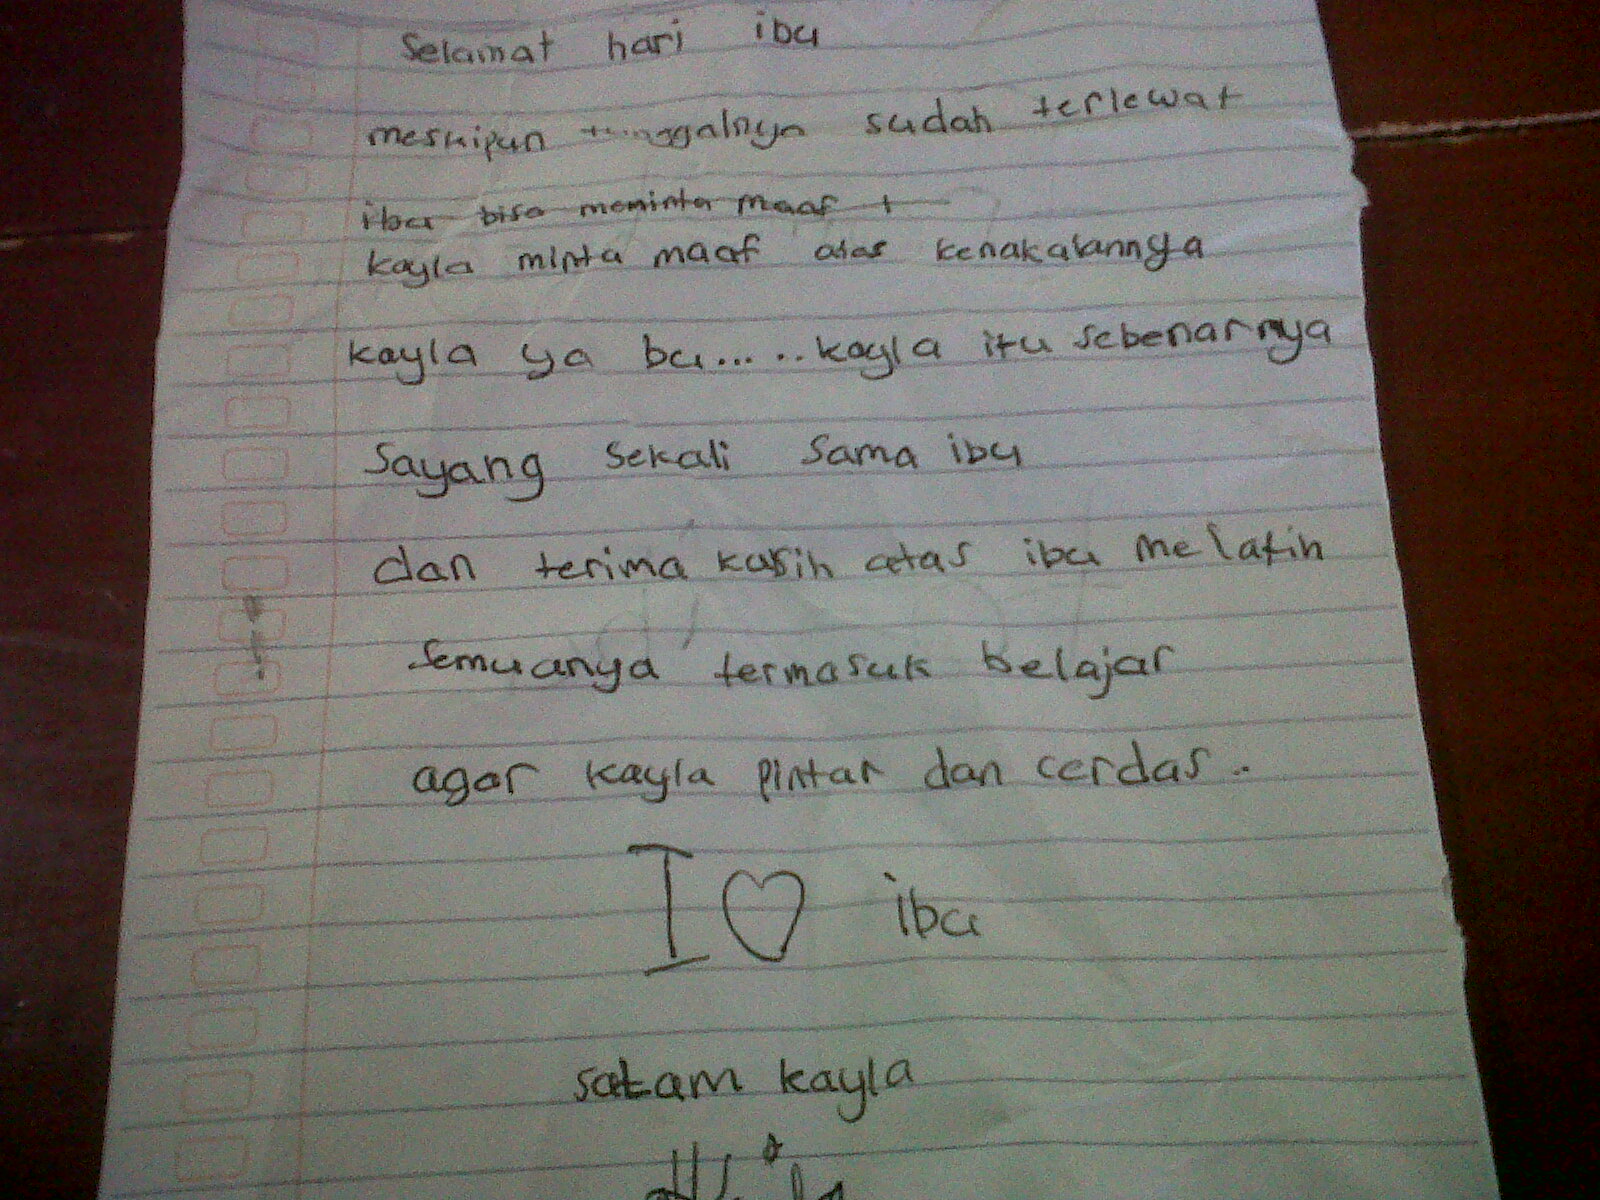 Selamat hari ibu
meskipun tanggalnya sudah terlewat
ibu bisa meminta maaf t
kayla minta maaf atas kenakalannya
kayla ya bu.....kayla itu sebenarnya
Sayang sekali sama ibu
dan terima kasih atas ibu melatih
semuanya termasuk belajar
agar kayla pintar dan cerdas..
I ♡ ibu
salam kayla